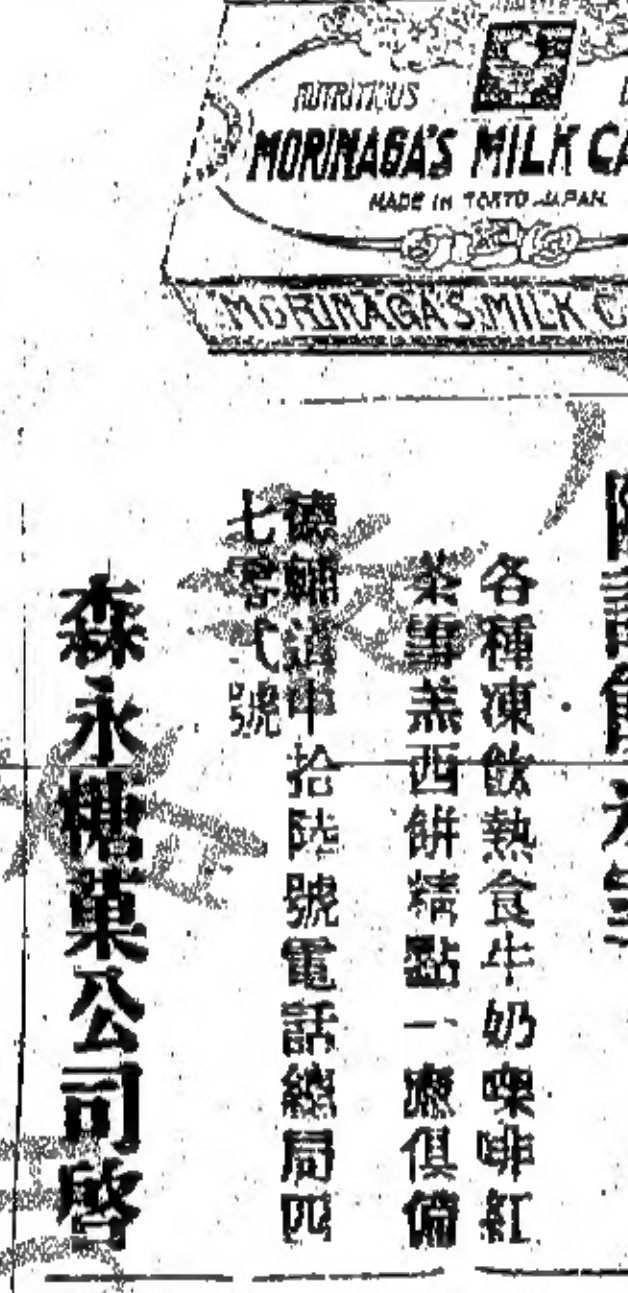 NUTRITIOUS
MORINAGA'S MILK CA
MADE IN TOKYO JAPAN
MORINAGA'S MILK C
各種凍飲熱食牛奶㗎啡紅
茶雪羔西餅精點一應俱備
德輔道中拾陸號電話總局四
七零弍號
森永糖菓公司啓